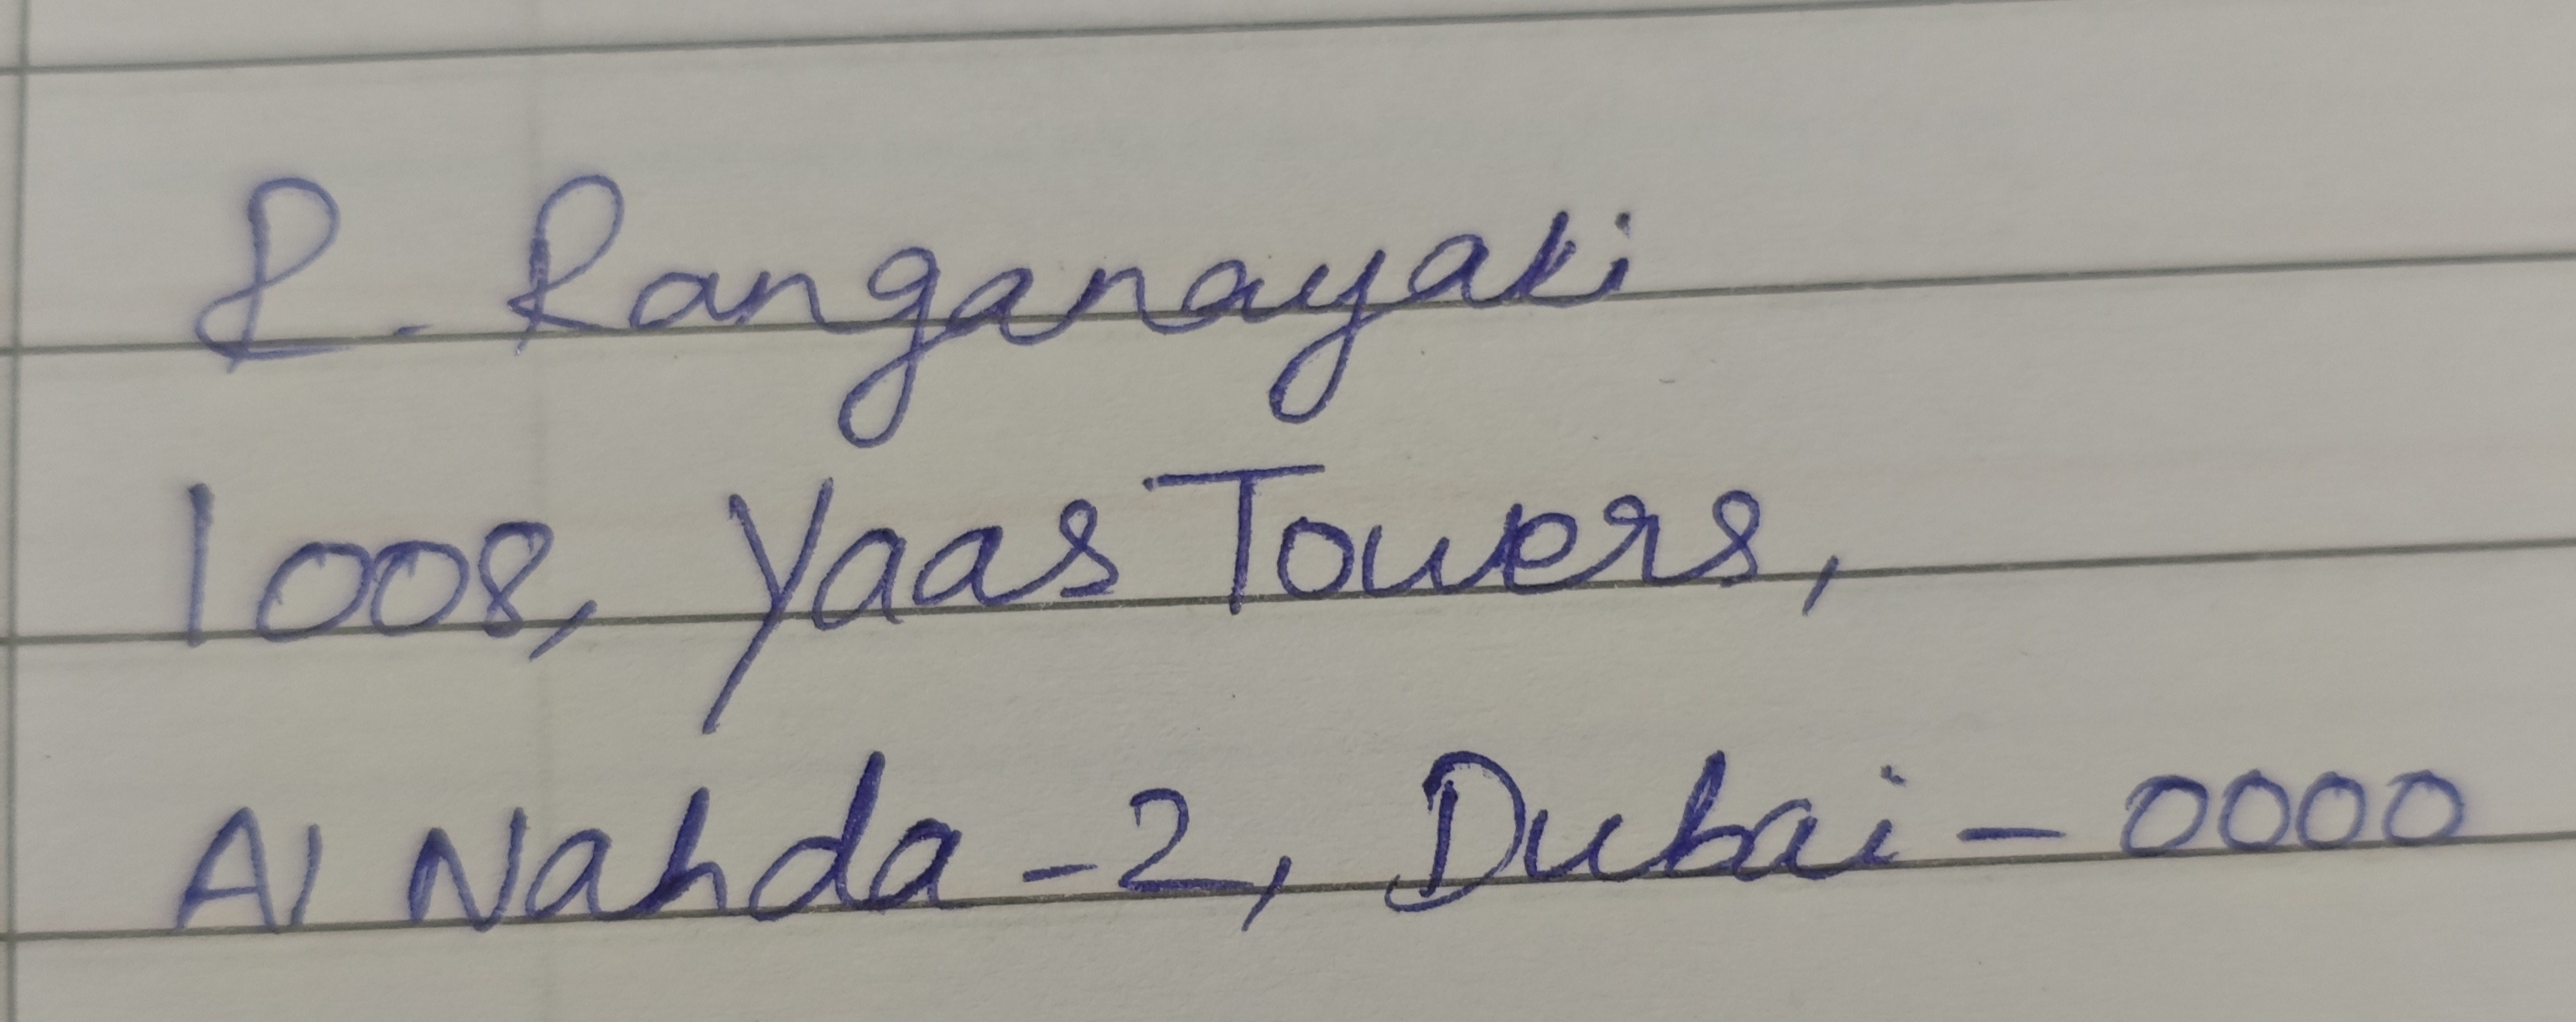 R. Ranganayaki
1008, Yaas Towers,
Al Nahda - 2, Dubai - 0000